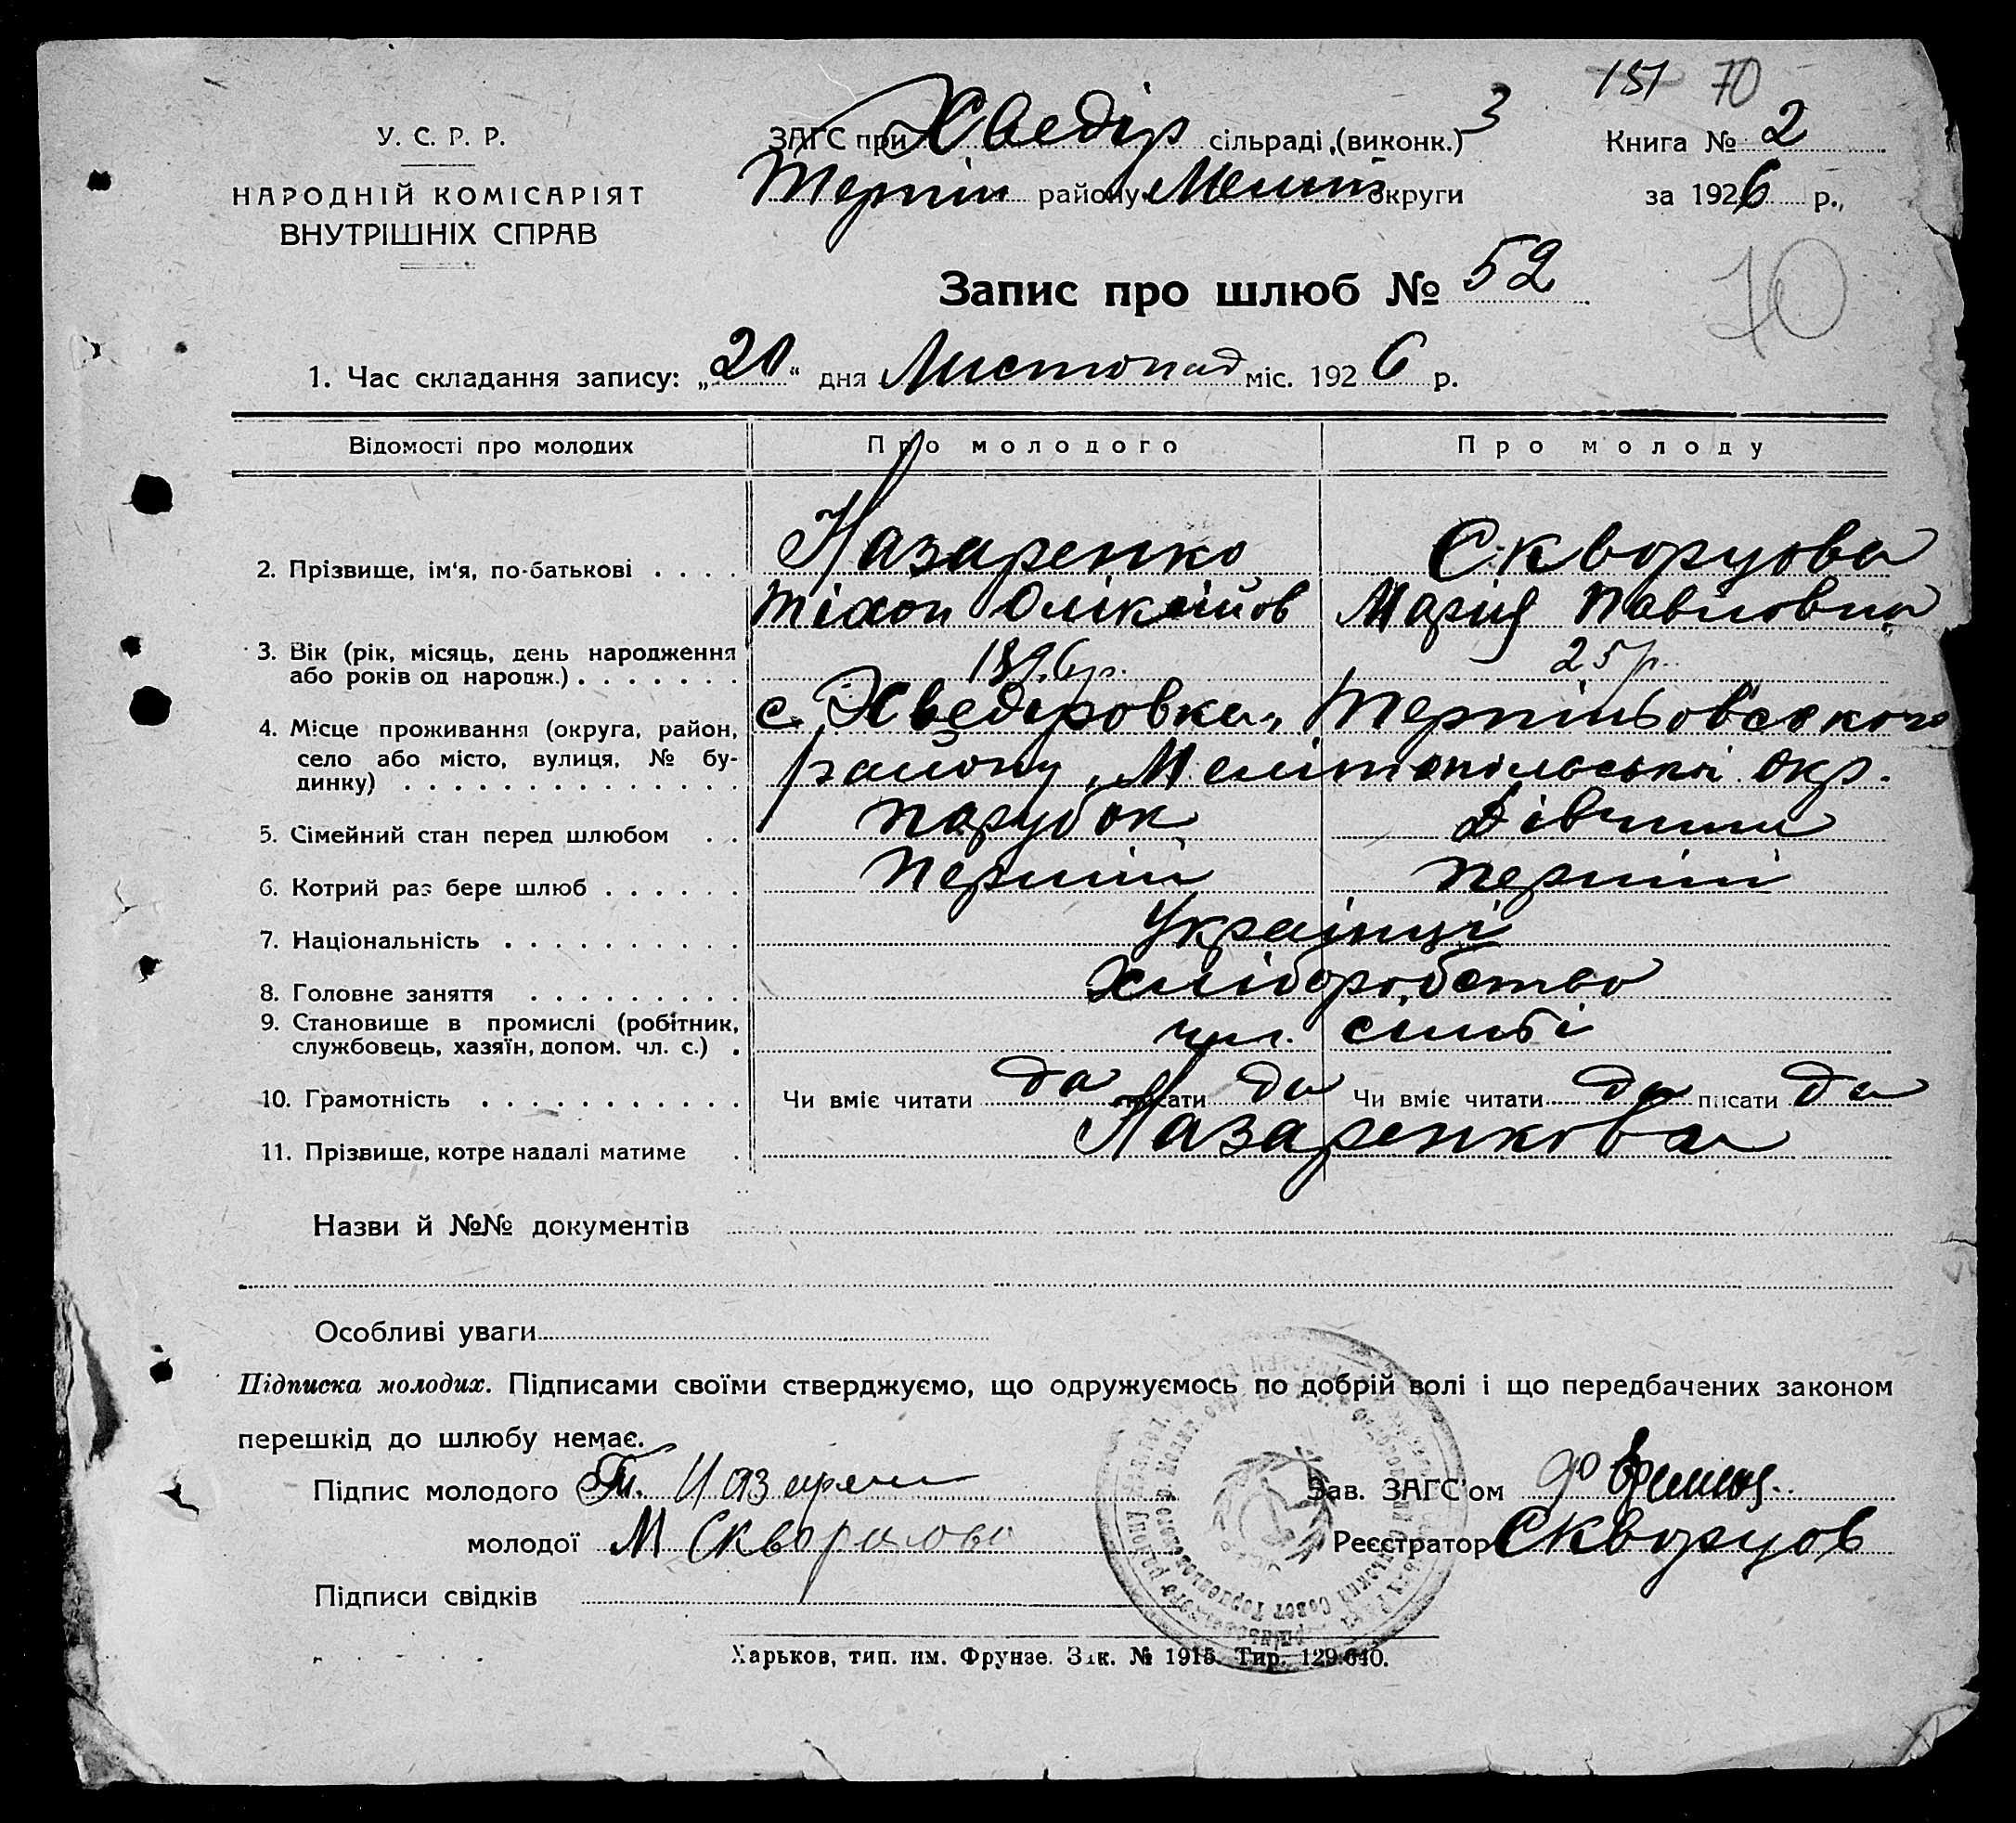 151 70
У. С. Р. Р.
НАРОДНІЙ КОМІСАРІЯТ
ВНУТРІШНІХ СПРАВ
ЗАГС при Хведір сільраді (виконк.) 3
Терпін району Меліт округи
Книга № 2
за 1926 р.,
Запис про шлюб № 52
70
1. Час складання запису: „20“ дня Листопад міс. 1926 р.
Відомості про молодих Про молодого Про молоду
2. Прізвище, ім'я, по-батькові . . . . Назаренко Скворцова
Тіхон Оліксійов Марія Павловна
3. Вік (рік, місяць, день народження
або років од народж.) . . . . . . . 1896 р. 25 р.
4. Місце проживання (округа, район,
село або місто, вулиця, № бу-
динку) . . . . . . . . . . . . . . .
с. Хведіровка, Терпіньовського
району, Мелітопільської окр.
5. Сімейний стан перед шлюбом . . парубок Дівчина
6. Котрий раз бере шлюб . . . . . . Перший перший
7. Національність . . . . . . . . . . Українці
8. Головне заняття . . . . . . . . . Хліборобство
9. Становище в промислі (робітник,
службовець, хазяїн, допом. чл. с.) . чл. симьї
10. Грамотність . . . . . . . . . . . Чи вміє читати да писати да Чи вміє читати да писати да
11. Прізвище, котре надалі матиме . Назаренкова
Назви й №№ документів
Особливі уваги
Підписка молодих. Підписами своїми стверджуємо, що одружуємось по добрій волі і що передбачених законом
перешкід до шлюбу немає.
Підпис молодого Ти. Назарен
Зав. ЗАГС'ом
молодої М Скворцова
Реєстратор Скворцов
Підписи свідків
Харьков, тип. им. Фрунзе. Зак. № 1915. Тир. 129.640.